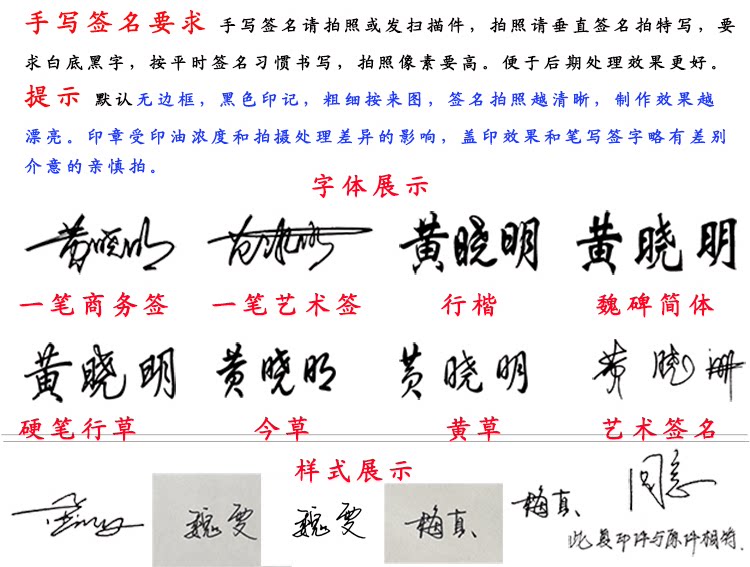 手写签名要求 手写签名请拍照或发扫描件，拍照请垂直签名拍特写，要
求白底黑字，按平时签名习惯书写，拍照像素要高。便于后期处理效果更好。
提示 默认无边框，黑色印记，粗细按来图，签名拍照越清晰，制作效果越
漂亮。印章受印油浓度和拍摄处理差异的影响，盖印效果和笔写签字略有差别
介意的亲慎拍。
字体展示
黄晓明 黄晓明 黄晓明 黄晓明
一笔商务签 一笔艺术签 行楷 魏碑简体
黄晓明 黄晓明 黄晓明 黄晓明
硬笔行草 今草 黄草 艺术签名
样式展示
魏雯 魏雯 梅真 梅真、 同意
此复印件与原件相符.